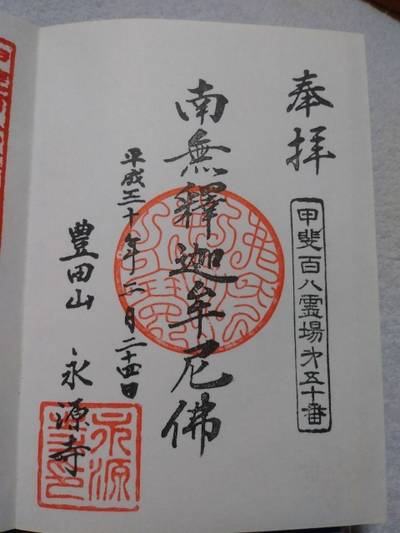 奉拝
甲斐百八霊場第五十番
南無釋迦牟尼佛
平成三十年二月二十四日
豊田山 永源寺